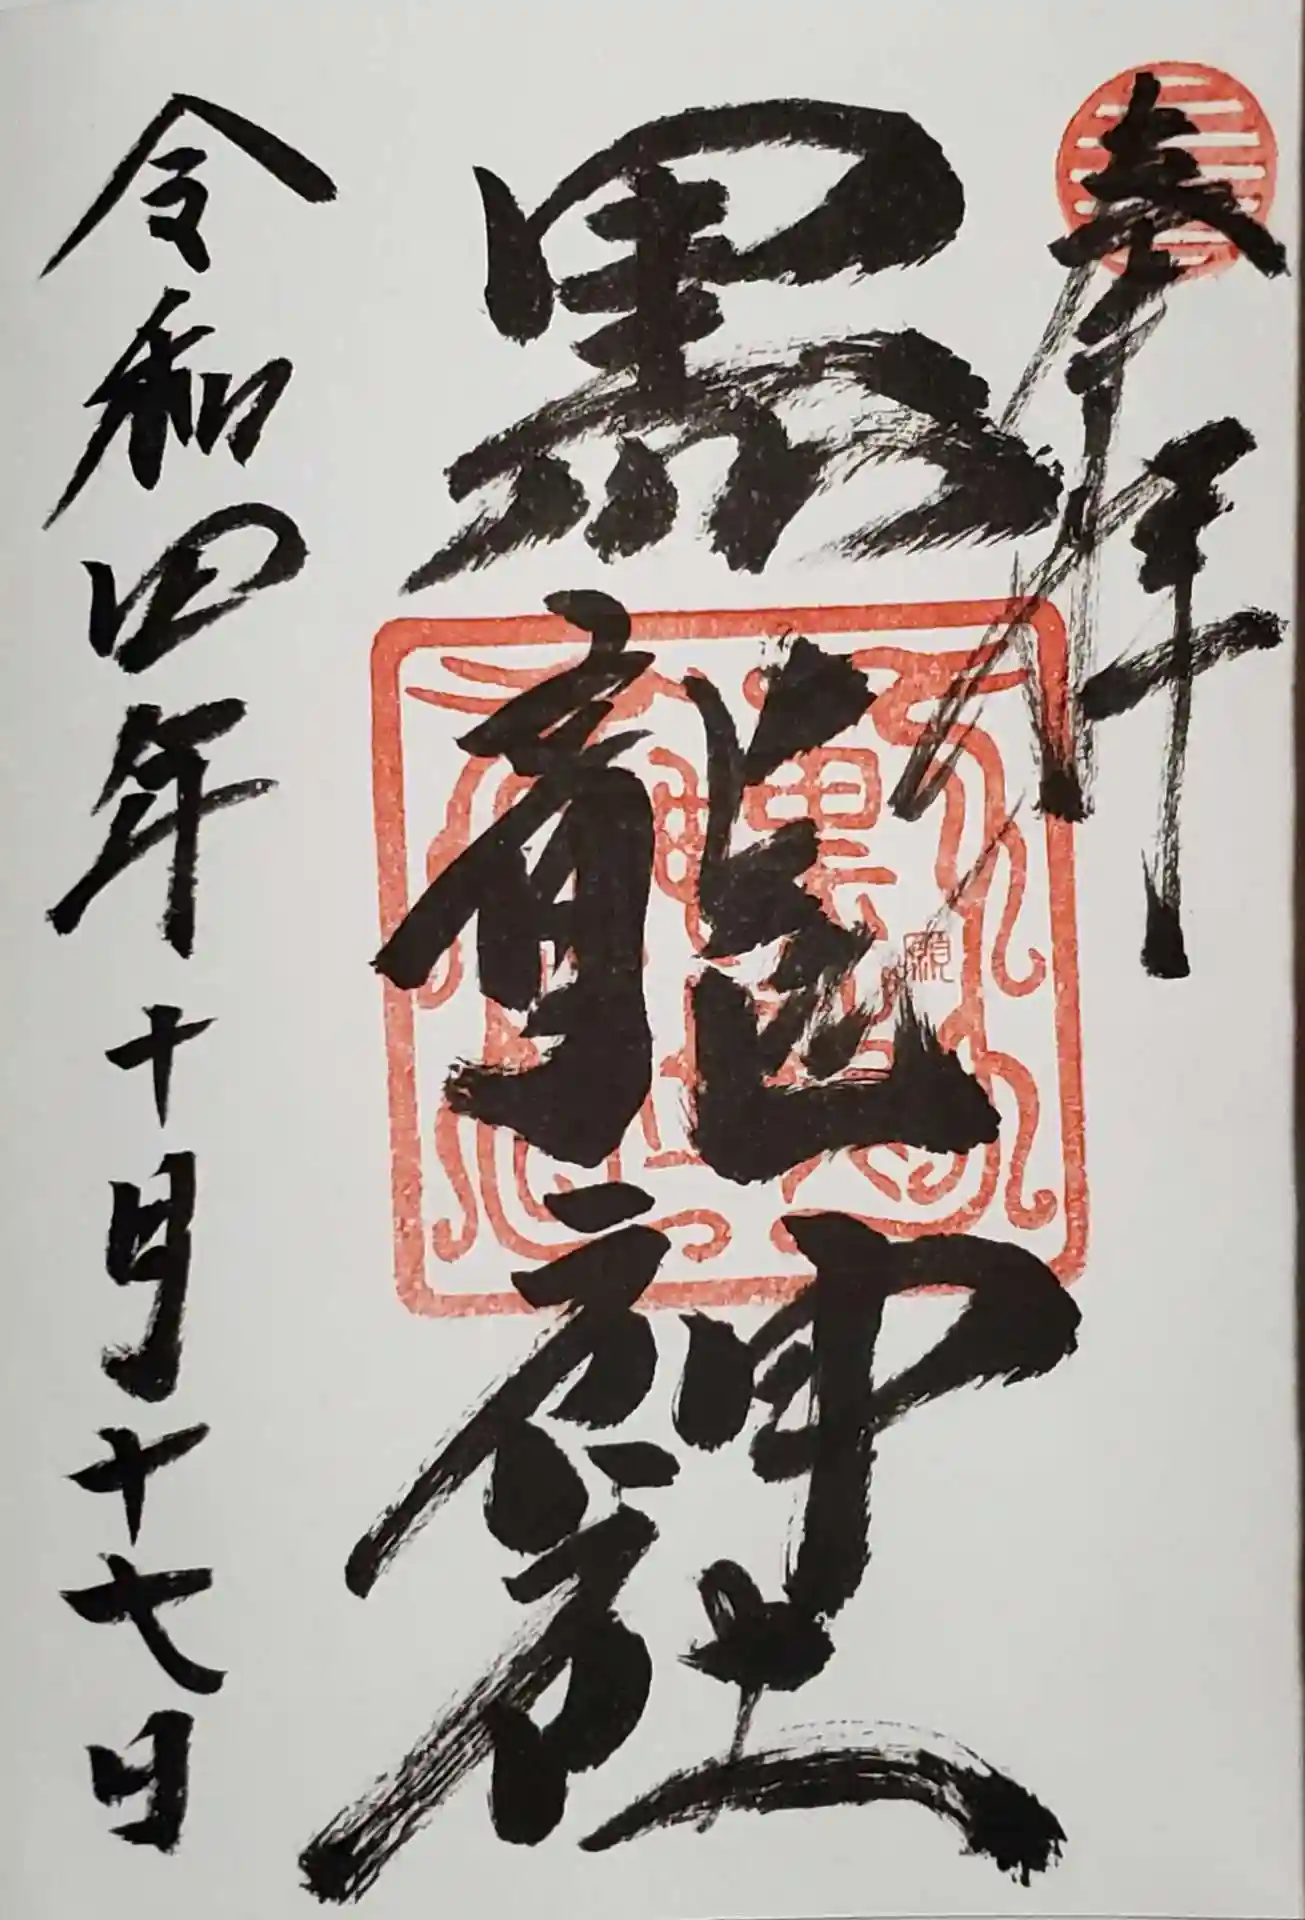 奉拝
黒龍神社
令和四年十月十七日
願